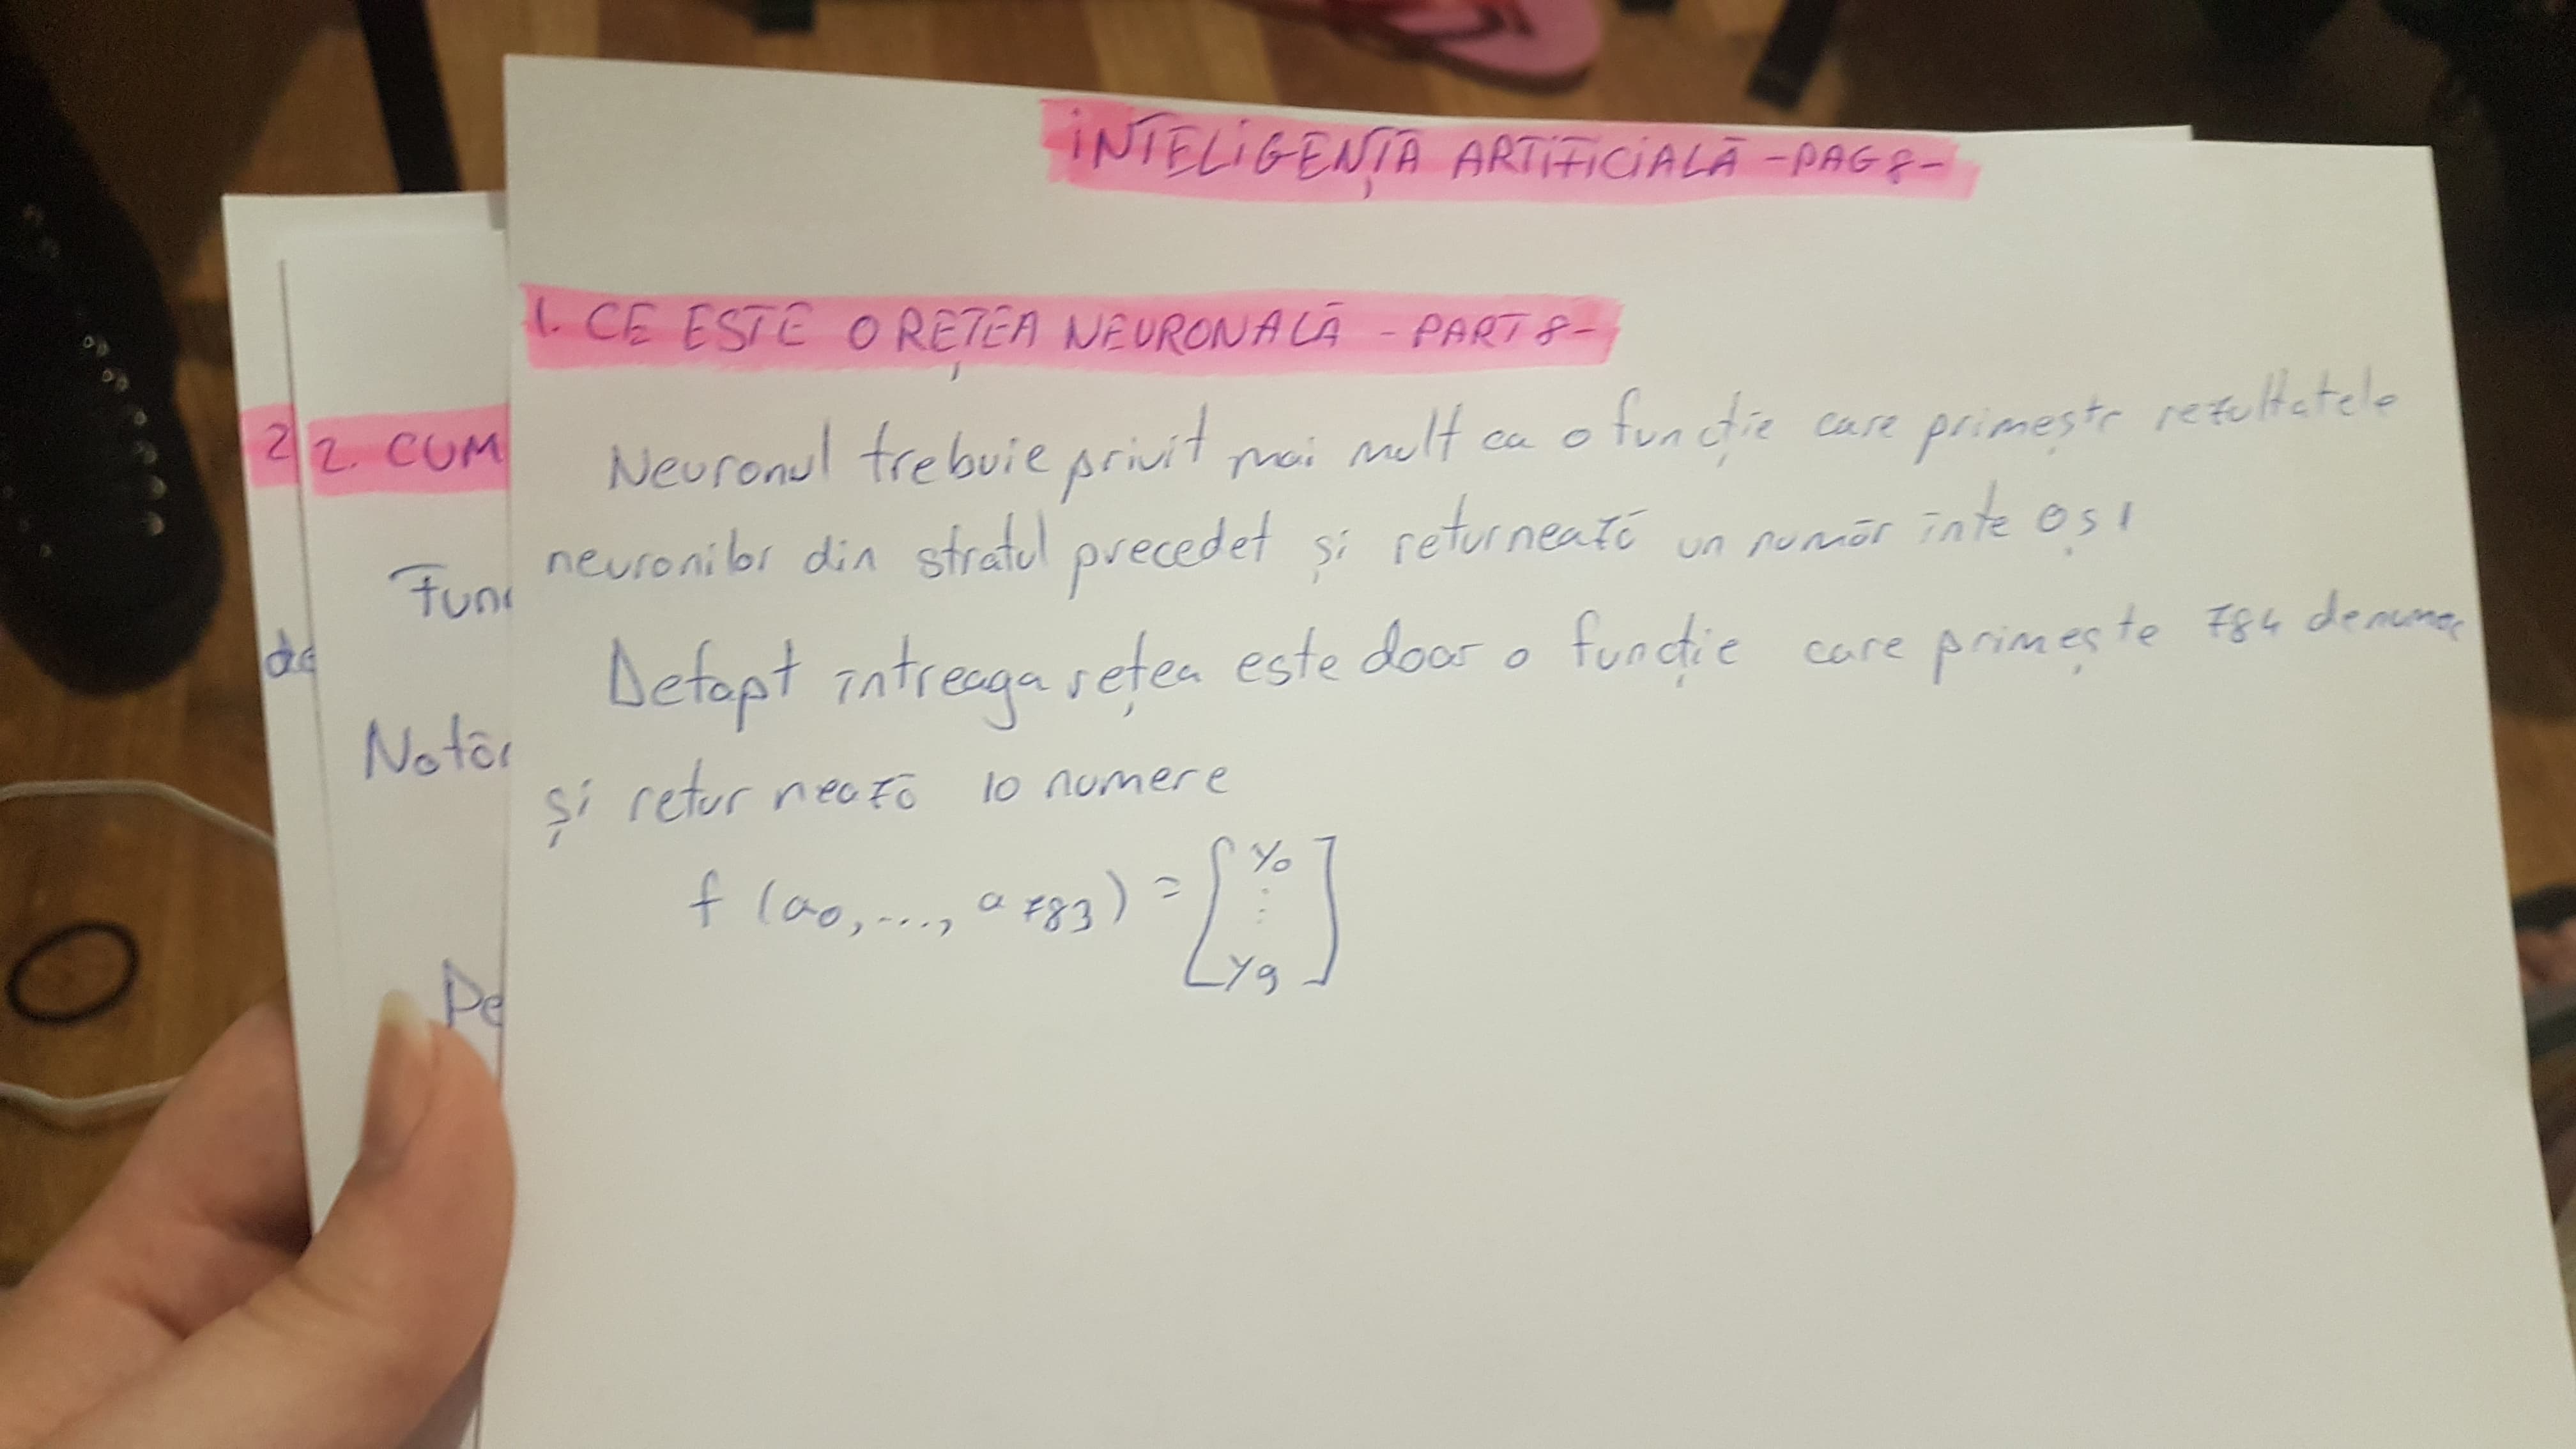 INTELIGENȚĂ ARTIFICIALĂ -PAG 8-
1. CE ESTE O REȚEA NEURONALĂ - PART 8-
Neuronul trebuie privit mai mult ca o funcție care primește rezultatele
neuronilor din stratul precedet și returnează un număr înte 0 ș 1
Defapt întreaga rețea este doar o funcție care primește 784 de numere
și returnează 10 numere
f (a0, ..., a783) = [y0
⋮
y9]
2
2. CUM
Func
de
Notăr
De